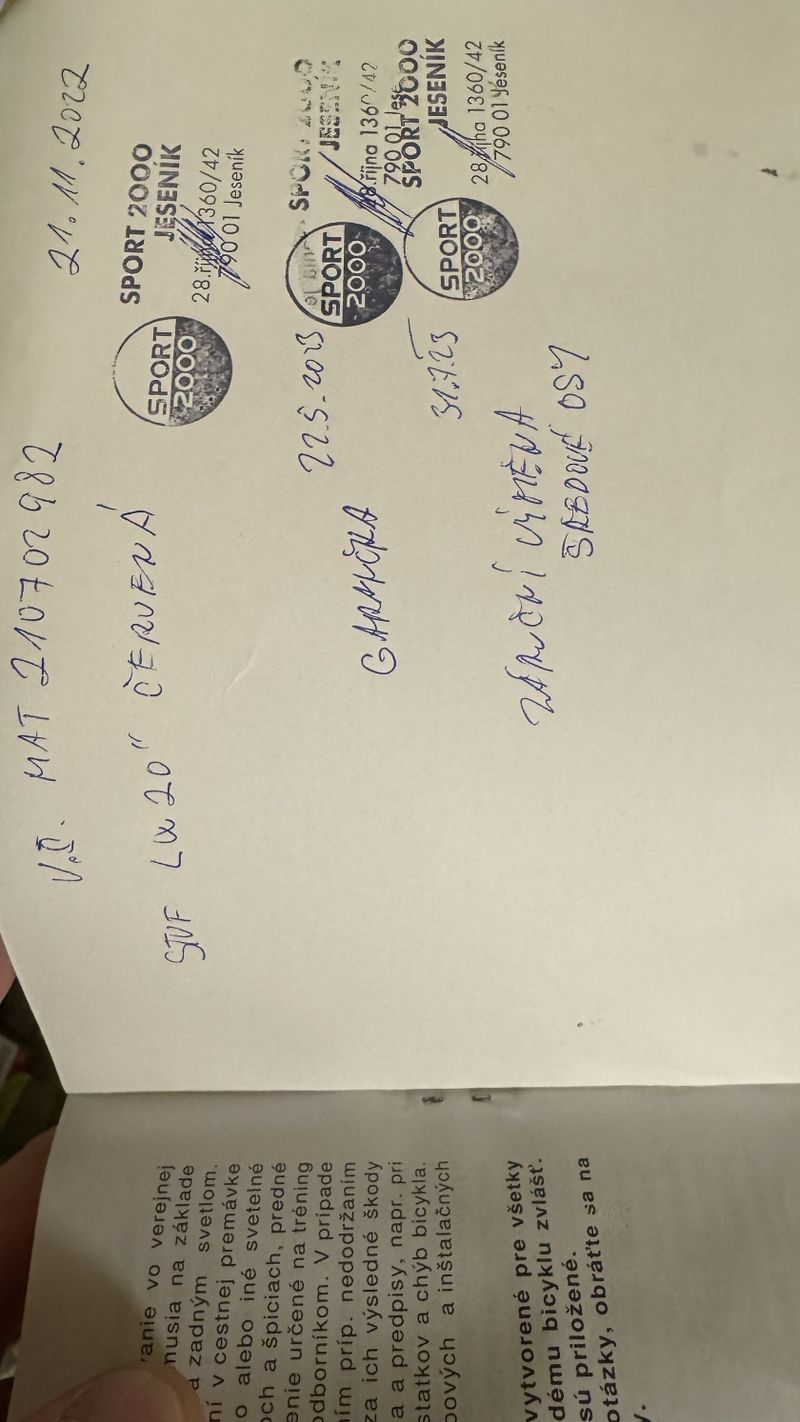 V.Č. MAT 210702982 21.11.2022
LW 20" ČERVENÁ
SPORT 2000
SPORT 2000
JESENÍK
28.října 1360/42
790 01 Jeseník
22.5.2023
SPORT 2000
SPORT 2000
JESENÍK
28.října 1360/42
790 01 Jese
GARANČKA
31.7.23
SPORT 2000
SPORT 2000
JESENÍK
28.října 1360/42
790 01 Jeseník
ZÁRUČNÍ VÝMĚNA
STŘEDOVÉ OSY
anie vo verejnej
musia na základe
zadným svetlom.
ní v cestnej premávke
o alebo iné svetelné
och a špiciach, predné
enie určené na tréning
odborníkom. V prípade
ím príp. nedodržaním
za ich výsledné škody
a a predpisy, napr. pri
statkov a chýb bicykla.
bových a inštalačných
vytvorené pre všetky
dému bicyklu zvlášť.
sú priložené.
otázky, obráťte sa na
y.